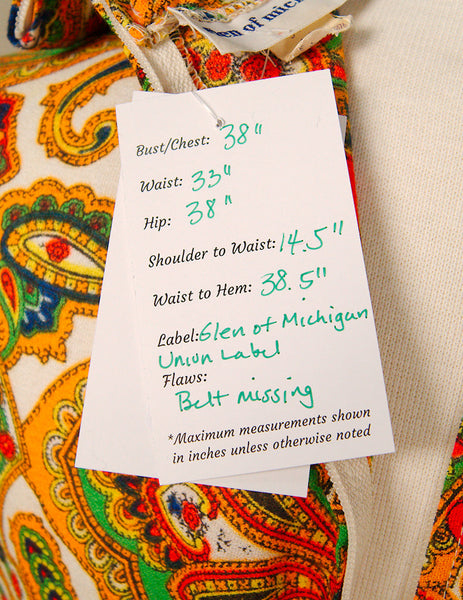 en of mich
Bust/Chest: 38"
Waist: 33"
Hip: 38"
Shoulder to Waist: 14.5"
Waist to Hem: 38.5"
Label: Glen of Michigan
Union Label
Flaws:
Belt missing
*Maximum measurements shown
in inches unless otherwise noted